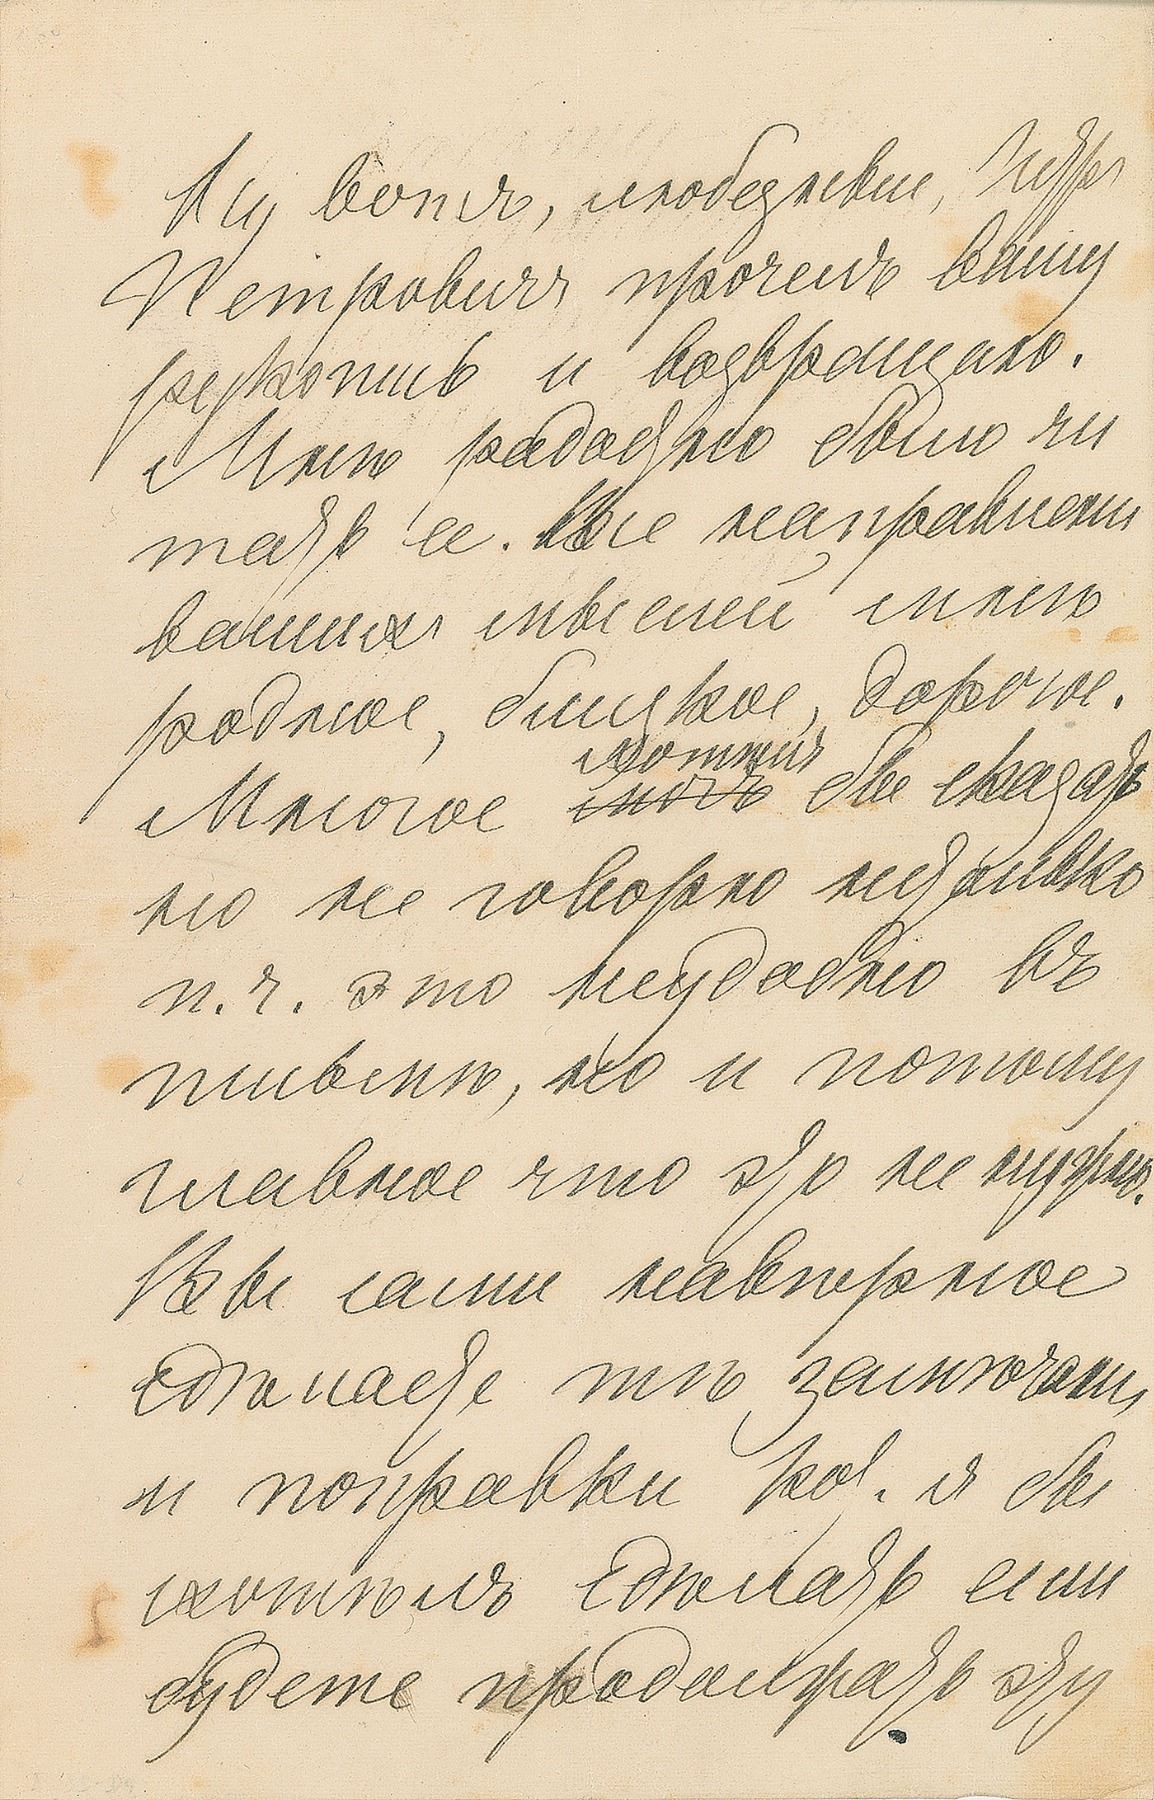 Ну вотъ, любезный, Петръ
Петровичъ прочелъ вашу
рукопись и возвращаю.
Мнѣ радостно было чи
тать ее. Все направленіе
вашихъ мыслей мнѣ
родное, близкое, дорогое.
хотѣлъ
Многое могъ бы сказать
но не говорю недостатко
п. ч. это неудобно въ
письмѣ, но и потому
главное что это не нужно.
Вы сами навѣрное
сдѣлаете тѣ заключенія
и поправки кот. я бы
хотѣлъ сдѣлать если
будете продолжать эту